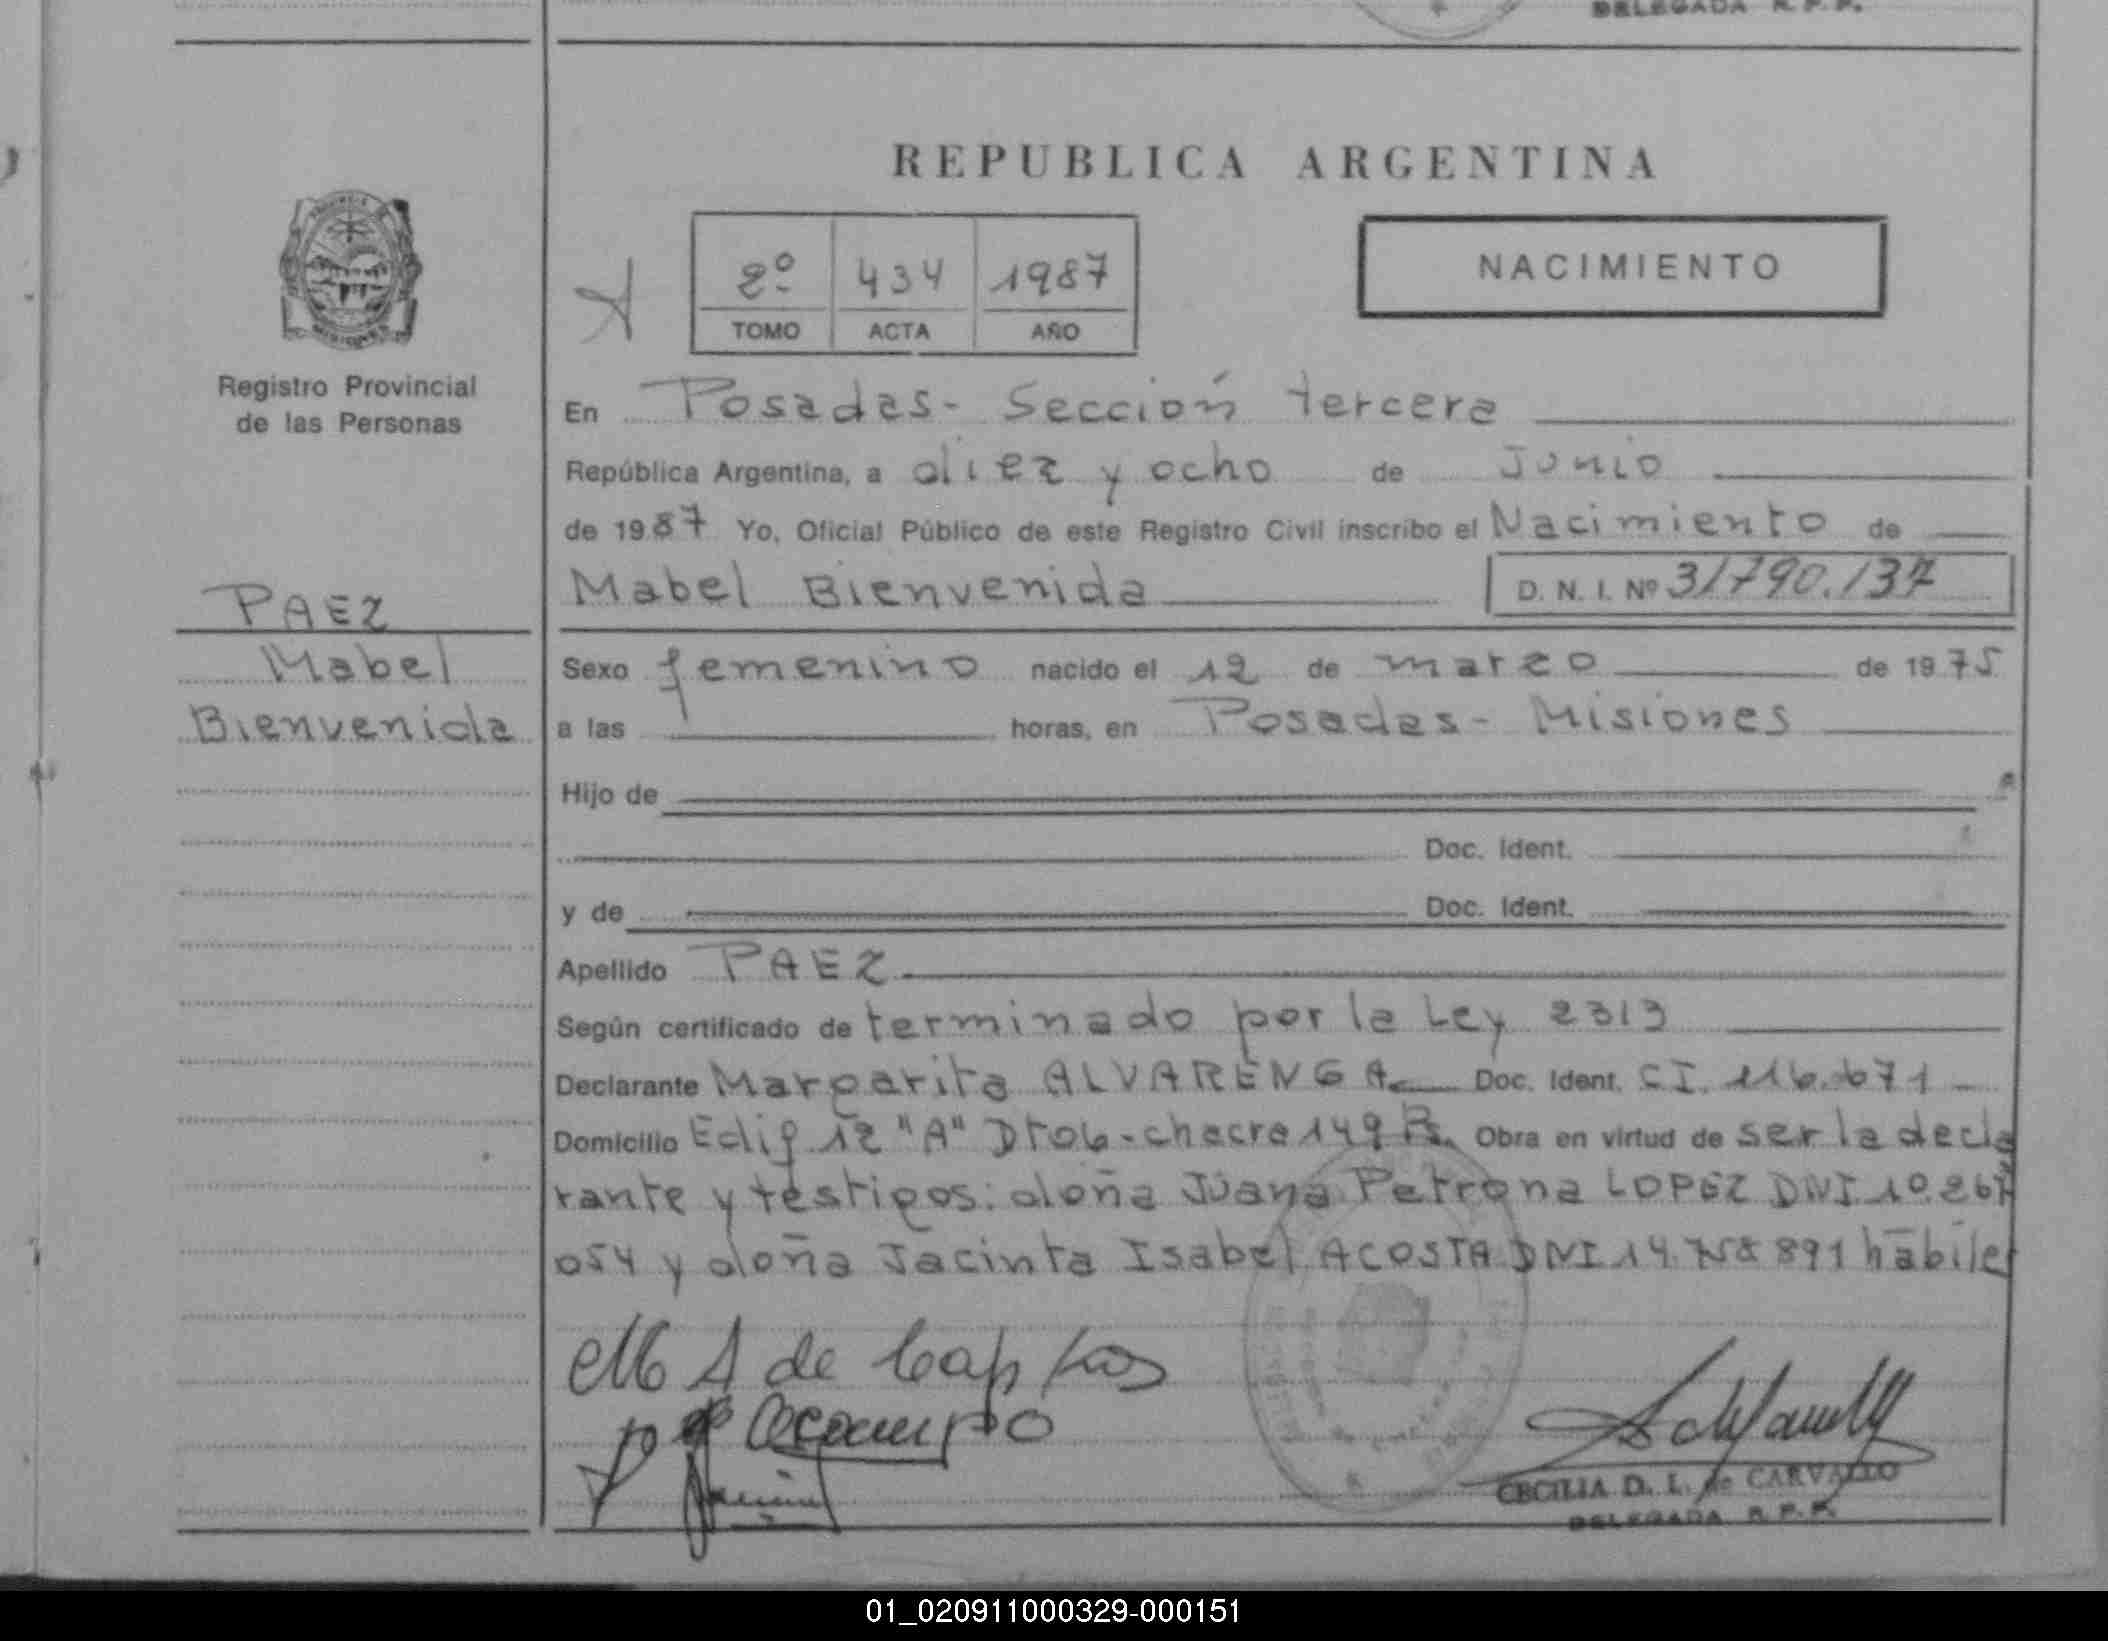 DELEGADA R. P. P.
REPUBLICA ARGENTINA
2º 434 1987
TOMO ACTA AÑO
NACIMIENTO
Registro Provincial
de las Personas
PAEZ
Mabel
Bienvenida
En Posadas - Sección tercera
República Argentina, a diez y ocho de Junio
de 1987 Yo, Oficial Público de este Registro Civil inscribo el Nacimiento de
Mabel Bienvenida D. N. I. Nº 31790.137
Sexo femenino nacido el 12 de marzo de 1975
a las horas, en Posadas - Misiones
Hijo de
Doc. Ident.
y de Doc. Ident.
Apellido PAEZ
Según certificado de terminado por la Ley 2313
Declarante Margarita ALVARENGA Doc. Ident. CI. 116.671
Domicilio Edif 12 "A" Dto6 - chacra 149 Obra en virtud de ser la decla
rante y testigos: doña Juana Petrona LOPEZ DNI 10.267
054 y doña Jacinta Isabel ACOSTA DNI 14. 891 hábiles
Ocampo
CECILIA D. L. de CARVALLO
DELEGADA R. P. P.
01_020911000329-000151